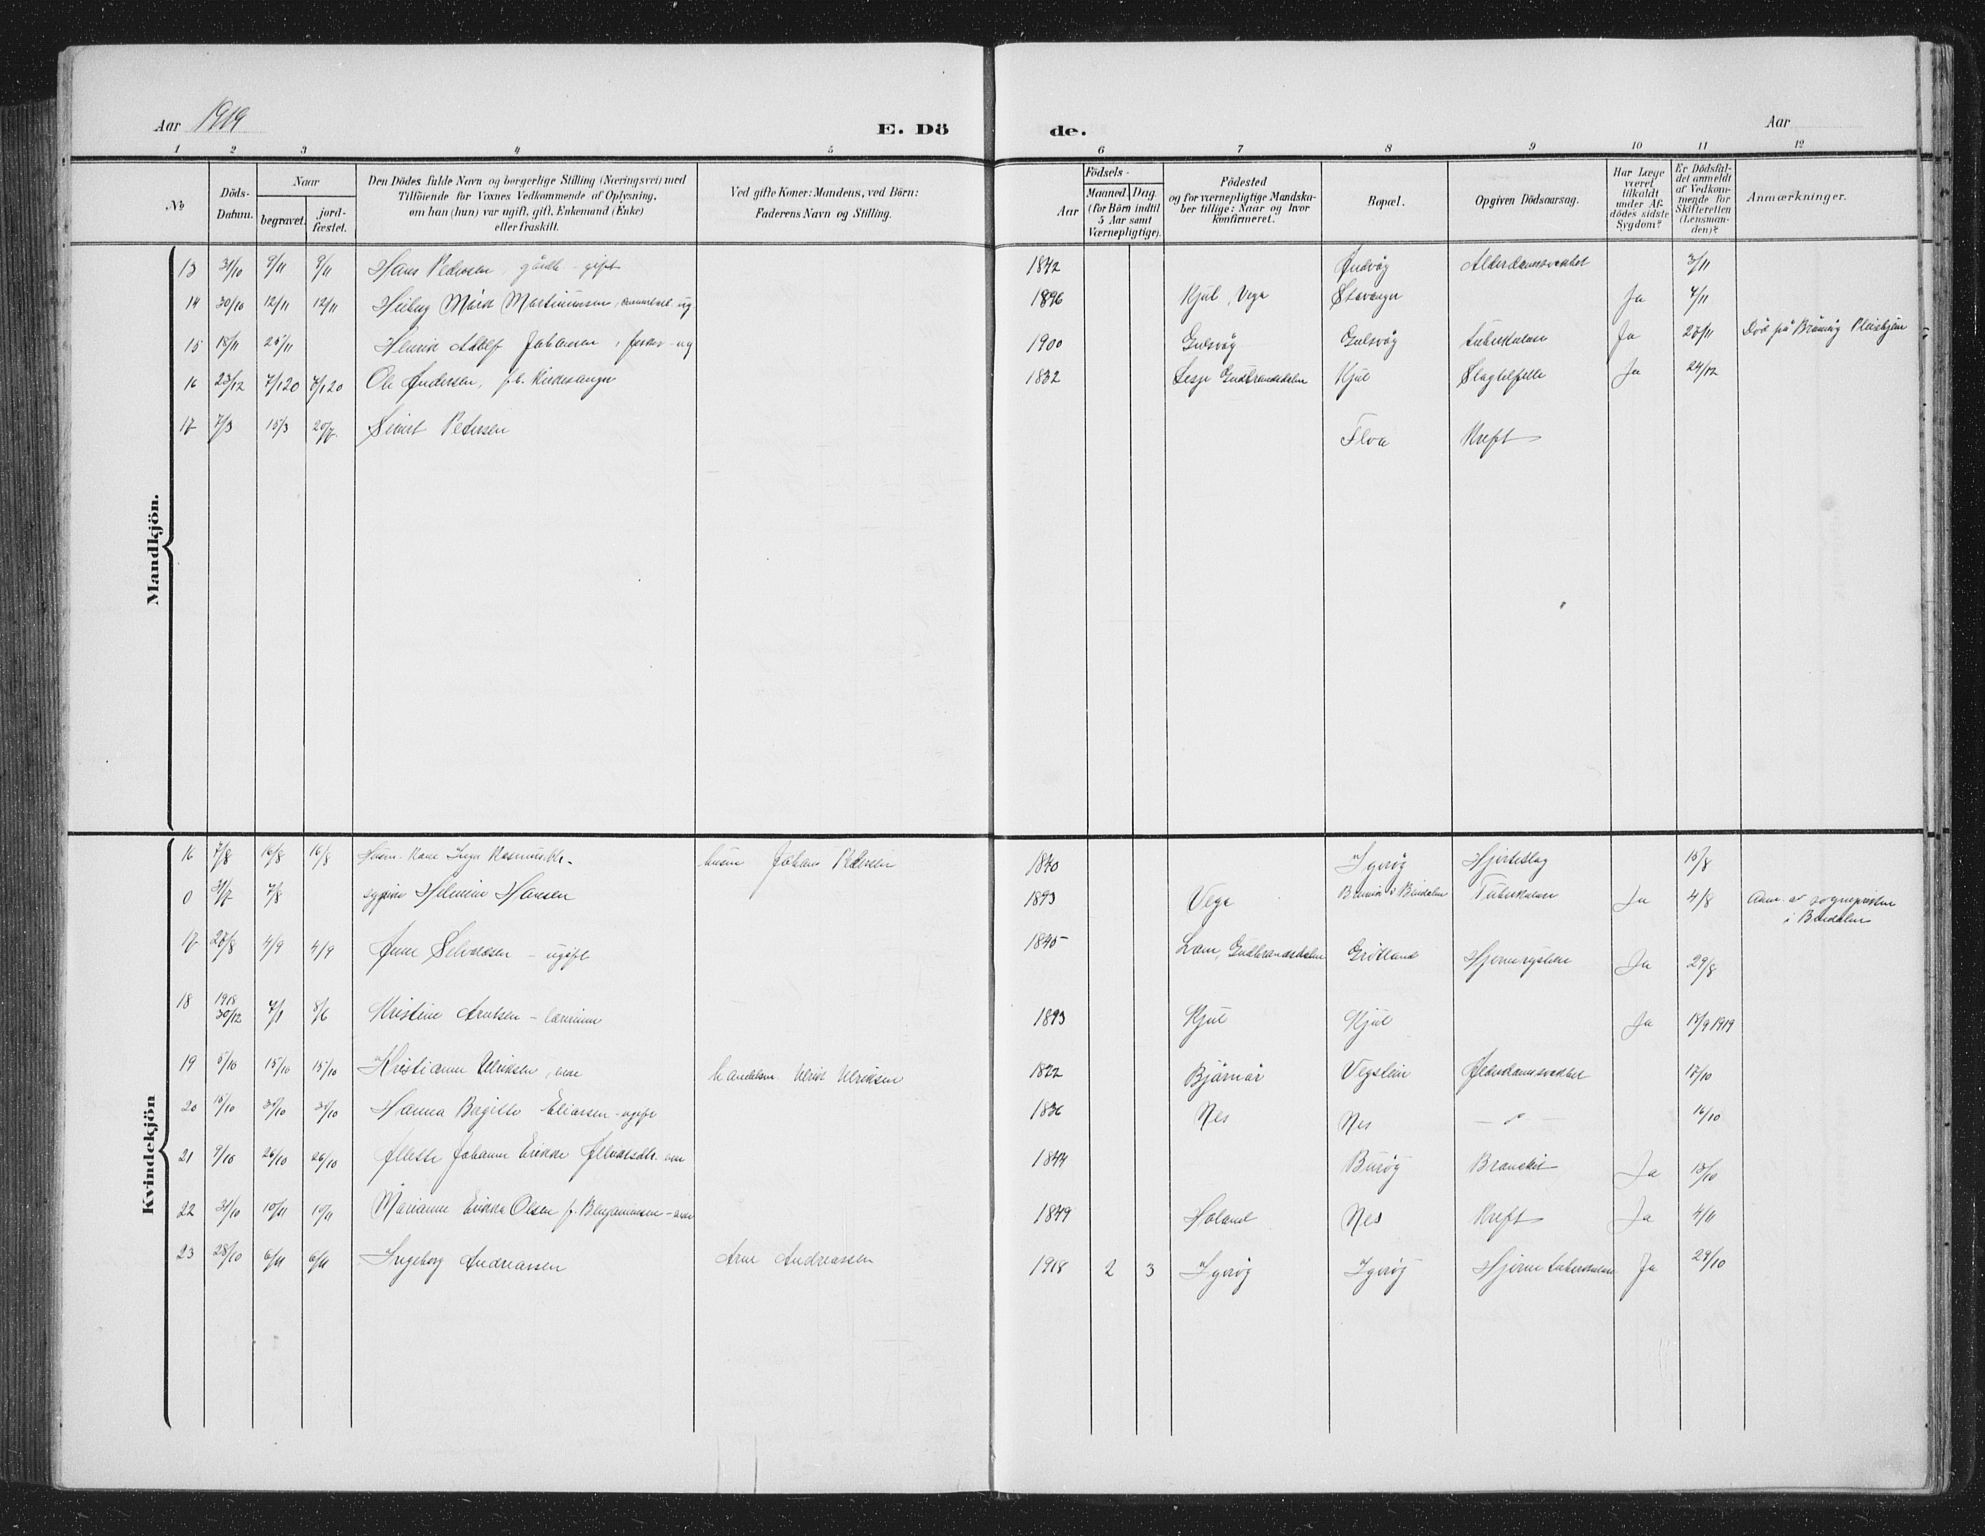 Aar 1919
E. Dö
de.
Aar
1 2 3 4 5 6 7 8 9 10 11 12
No
Döds-Datum.
Naar
begravet.
jord-fæstet.
Den Dödes fulde Navn og borgerlige Stilling (Næringsvei) med
Tilföiende for Voxnes Vedkommende af Oplysning,
om han (hun) var ugift, gift, Enkemand (Enke)
eller fraskilt.
Ved gifte Koner: Mandens, ved Börn:
Faderens Navn og Stilling.
Födsels-
Aar
Maaned. Dag.
(for Börn indtil
5 Aar samt
Værnepligtige).
Födested
og for værnepligtige Mandska-
ber tillige: Naar og hvor
konfirmeret.
Bopæl.
Opgiven Dödsaarsag.
Har Læge
været
tilkaldt
under Af-
dödes sidste
Sygdom?
Er Dödsfal-
det anmeldt
af Vedkom-
mende for
Skifteretten
(Lensman-
den)?
Anmærkninger.
Mandkjön.
13 31/10 9/11 9/11 Hans Pedersen, gårdb - gift 1842 Alderdomssvakhet 3/11
14 30/10 12/11 12/11 Martinussen 1896 Kjul, Vega Stavanger Ja 7/11
15 15/11 25/11 Henrik Adolf Johansen, fisker - ug 1900 Gulsvåg Gulsvåg Tuberkulose Ja Död på Brönöy Pleiehjem
16 23/12 7/1 20 7/1 20 Ole Andersen, f.b. Kirkesanger 1832 Lesje Gudbrandsdalen Kjul Slagtilfelle Ja 24/12
17 7/3 15/3 20/7 Sivert Pedersen Floa Kreft
Kvindekjön
16 7/8 16/8 16/8 Husm. Kone Inger Rasmusdtr. husm Johan Pedersen 1840 Igeröy Hjerteslag 15/8
0 31/7 7/8 Helmine Hansen 1893 Vega i Bindalen Tuberkulose Ja 4/8 Anm. av sognepresten
i Bindalen
17 4/9 4/9 Anne - ugift 1845 Lom, Gudbrandsdalen Grötland Hjernerystelse Ja 29/8
18 1918 30/12 7/1 8/6 Kristine Arntsen - lærerinne 1893 Kjul Kjul Ja 15/9 1919
19 5/10 15/10 15/10 Kristianne Ulriksen, enke handelsm. Ulrik Ulriksen 1822 Vegstein Alderdomssvakhet 17/10
20 15/10 Hanna Birgitte Eliassen - ugift 1836 Nes Nes - " - 16/10
21 9/10 26/10 26/10 Johanne Erikke 1844 Buröy Ja 13/10
22 31/10 10/11 10/11 Marianne Erikka Olsen f. Benjaminsen - enke 1849 Holand Nes Kreft Ja 4/11
23 28/10 6/11 6/11 Ingeborg Andreassen Arne Andreassen 1918 2 3 Igeröy Igeröy Hjerne tuberkulose Ja 29/10